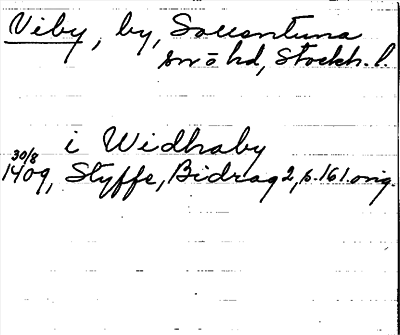 Viby, by, Sollentuna
sn o hd, Stockh. l.
i Widhaby
30/8
1409, Styffe, Bidrag 2, s. 161. orig.